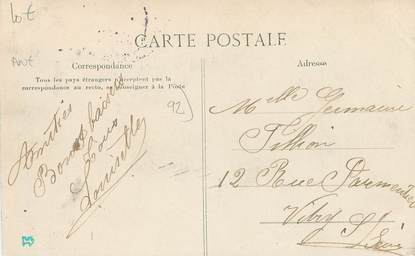 Lot
CARTE POSTALE
Correspondance
Tous les pays étrangers n'acceptent pas la
correspondance au recto, se renseigner à la Poste
92
Amitiés
Bons baisers
à tous
Adresse
Melle Germaine
Tillion
12 Rue Parmentier
Vitry S/
Seine